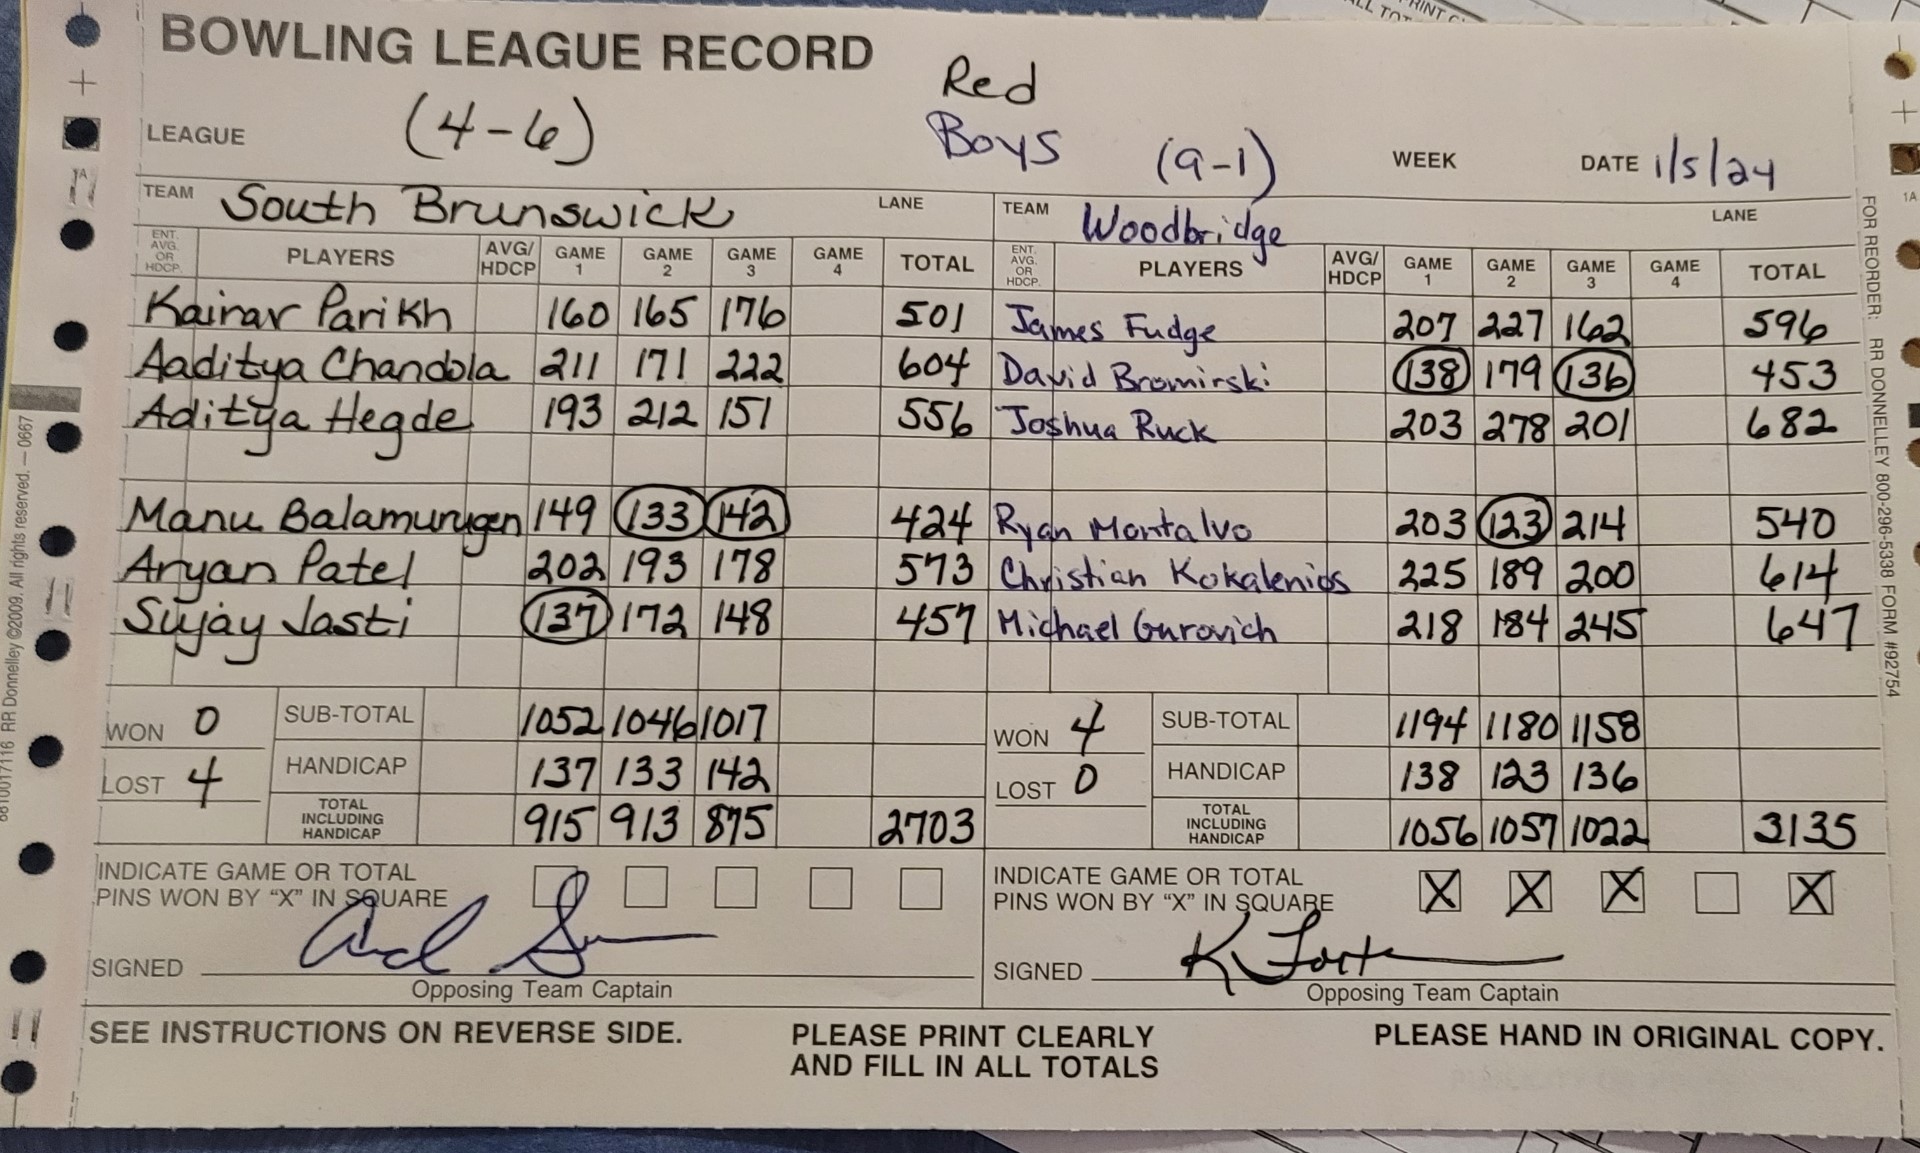 BOWLING LEAGUE RECORD
Red
Boys
LEAGUE (4-6) (9-1) WEEK DATE 1/5/24
TEAM South Brunswick LANE TEAM Woodbridge LANE
ENT. AVG. OR HDCP. PLAYERS AVG/ HDCP GAME 1 GAME 2 GAME 3 GAME 4 TOTAL ENT. AVG. OR HDCP. PLAYERS AVG/ HDCP GAME 1 GAME 2 GAME 3 GAME 4 TOTAL
Kairav Parikh 160 165 176 501 James Fudge 207 227 162 596
Aaditya Chandola 211 171 222 604 David Bromirski 138 179 136 453
Aditya Hegde 193 212 151 556 Joshua Ruck 203 278 201 682
Manu Balamurugen 149 133 142 424 Ryan Montalvo 203 123 214 540
Aryan Patel 202 193 178 573 Christian Kokalenios 225 189 200 614
Sujay Jasti 137 172 148 457 Michael Gurovich 218 184 245 647
WON 0 SUB-TOTAL 1052 1046 1017 WON 4 SUB-TOTAL 1194 1180 1158
LOST 4 HANDICAP 137 133 142 LOST 0 HANDICAP 138 123 136
TOTAL INCLUDING HANDICAP 915 913 875 2703 TOTAL INCLUDING HANDICAP 1056 1057 1022 3135
INDICATE GAME OR TOTAL INDICATE GAME OR TOTAL
PINS WON BY "X" IN SQUARE PINS WON BY "X" IN SQUARE X X X X
SIGNED SIGNED K Forte
Opposing Team Captain Opposing Team Captain
SEE INSTRUCTIONS ON REVERSE SIDE. PLEASE PRINT CLEARLY PLEASE HAND IN ORIGINAL COPY.
AND FILL IN ALL TOTALS
FOR REORDER: RR DONNELLEY 800-296-5338 FORM #92754
RR Donnelley ©2009. All rights reserved. — 0667
1A
1A